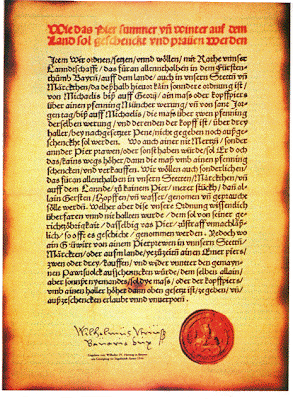 Wie das Pier summer vñ winter auf dem
Land sol geschenckt vnd prauen werden
Item Wir ordnen/setzen/vnnd wöllen/mit Rathe vnnser
Lanndtschafft/das für an allenthalben in dem Fürsten-
thumb Bayrn/auff dem lande/auch in vnsern Stettñ vñ
Märckthen/da deßhalb hieuor kain sonndere ordnung ist/
von Michaelis biß auff Georij/ain maß oder kopffpiers
über ainen pfenning Müncher werung/vñ von sant Jor-
gen tag/biß auff Michaelis/die maß über zwen pfenning
derselben werung/vnd derenden der kopff ist/über drey
haller/bey nachgesetzter Pene/nicht gegeben noch außge-
schenckht sol werden. Wo auch ainer nit Mertzñ/sonder
annder Pier prawen/oder sonst haben würde/sol Er doch
das/kains wegs höher/dann die maß vmb ainen pfenning
schencken/vnd verkauffen. Wir wöllen auch sonderlichen/
das für an allenthalben in vnsern Stetten/Märckthen/vñ
auff dem Lannde/zů kainem Pier/merer stückh/dañ al-
lain Gersten/Hopffen/vñ wasser/genomen vñ gepraucht
sölle werden. Welher aber dise vnsere Ordnung wissentlich
überfaren vnnd nit hallten wurde/dem sol von seiner ge-
richtzöbrigkait/dasselbig vas Pier/zůstraff vnnachläß-
lich/so offt es geschicht/genommen werden. Jedoch wo
ain Gůwirt von ainem Pierprewen in vnnsern Stettñ/
Märckten/oder aufm lande/yezůzeitñ ainen Emer piers/
zwen oder drey/kauffen/vnd wider vnnter den gemaynen
Pawrsuolck außschencken würde/dem selben allain/
aber sonnst nyemandes/sol dye maß/oder der kopffpiers/
vmb ainen haller höher dann oben gesetzt ist/ze geben/vñ
außzeschencken erlaubt vnnd vnuerpotñ.
Gegeben von Wilhelm IV. Herzog in Bayern
am Georgitag zu Ingolstadt Anno 1516